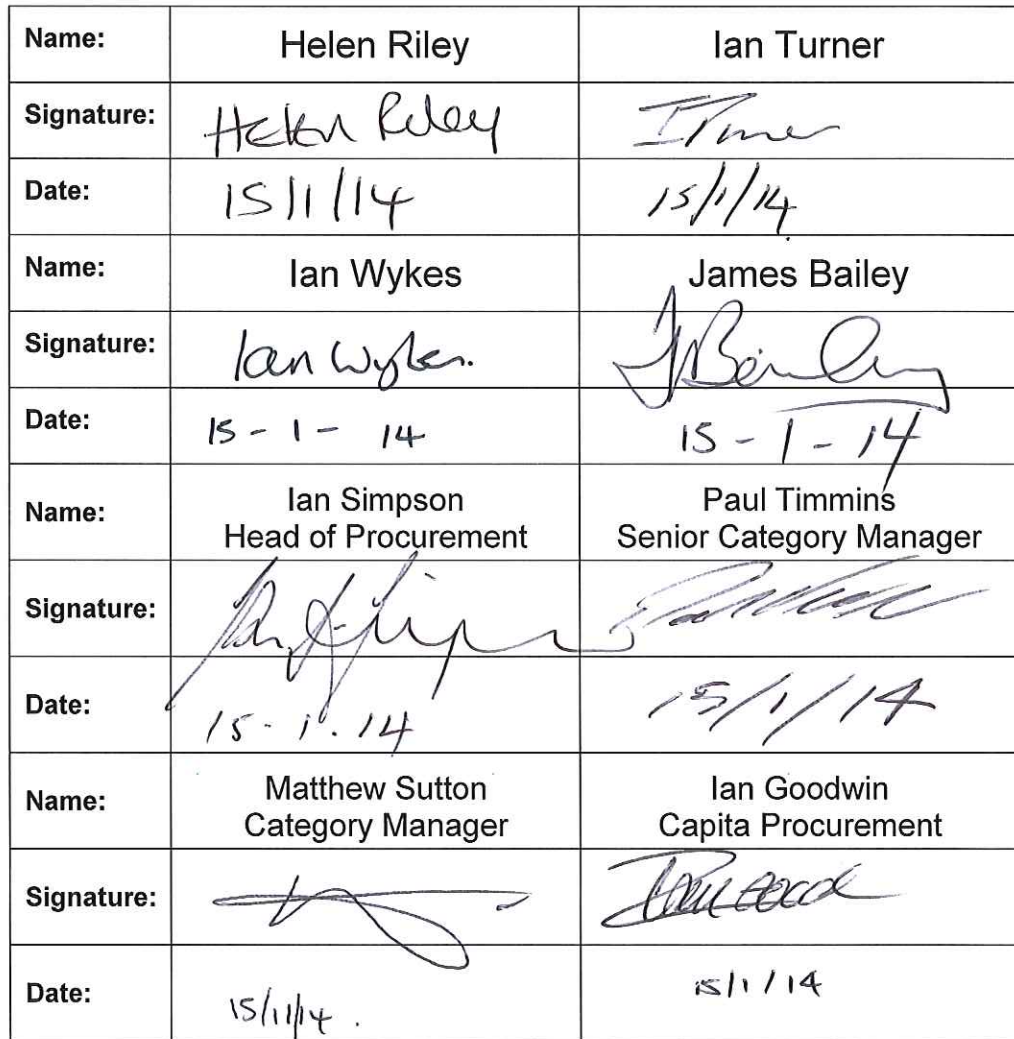 Name: Helen Riley Ian Turner
Signature: Helen Riley ITurner
Date: 15/1/14 15/1/14
Name: Ian Wykes James Bailey
Signature: Ian Wykes. JBailey
Date: 15 - 1 - 14 15 - 1 - 14
Name: Ian Simpson Paul Timmins
Head of Procurement Senior Category Manager
Signature:
Date: 15 - 1 . 14 15/1/14
Name: Matthew Sutton Ian Goodwin
Category Manager Capita Procurement
Signature:
Date: 15/1/14. 15/1/14